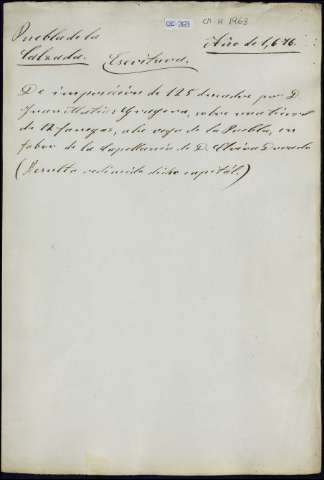 CM-H 1963
Puebla de la
Calzada. Escritura. Año de 1,676.
De imposición de 125 ducados por D.
Juan Matías Gragera, sobre una tierra
de 12 fanegas, a la vega de la Puebla, en
fabor de la Capellanía de D. Elvira Durado
(Resulta redimido dicho capitál.)